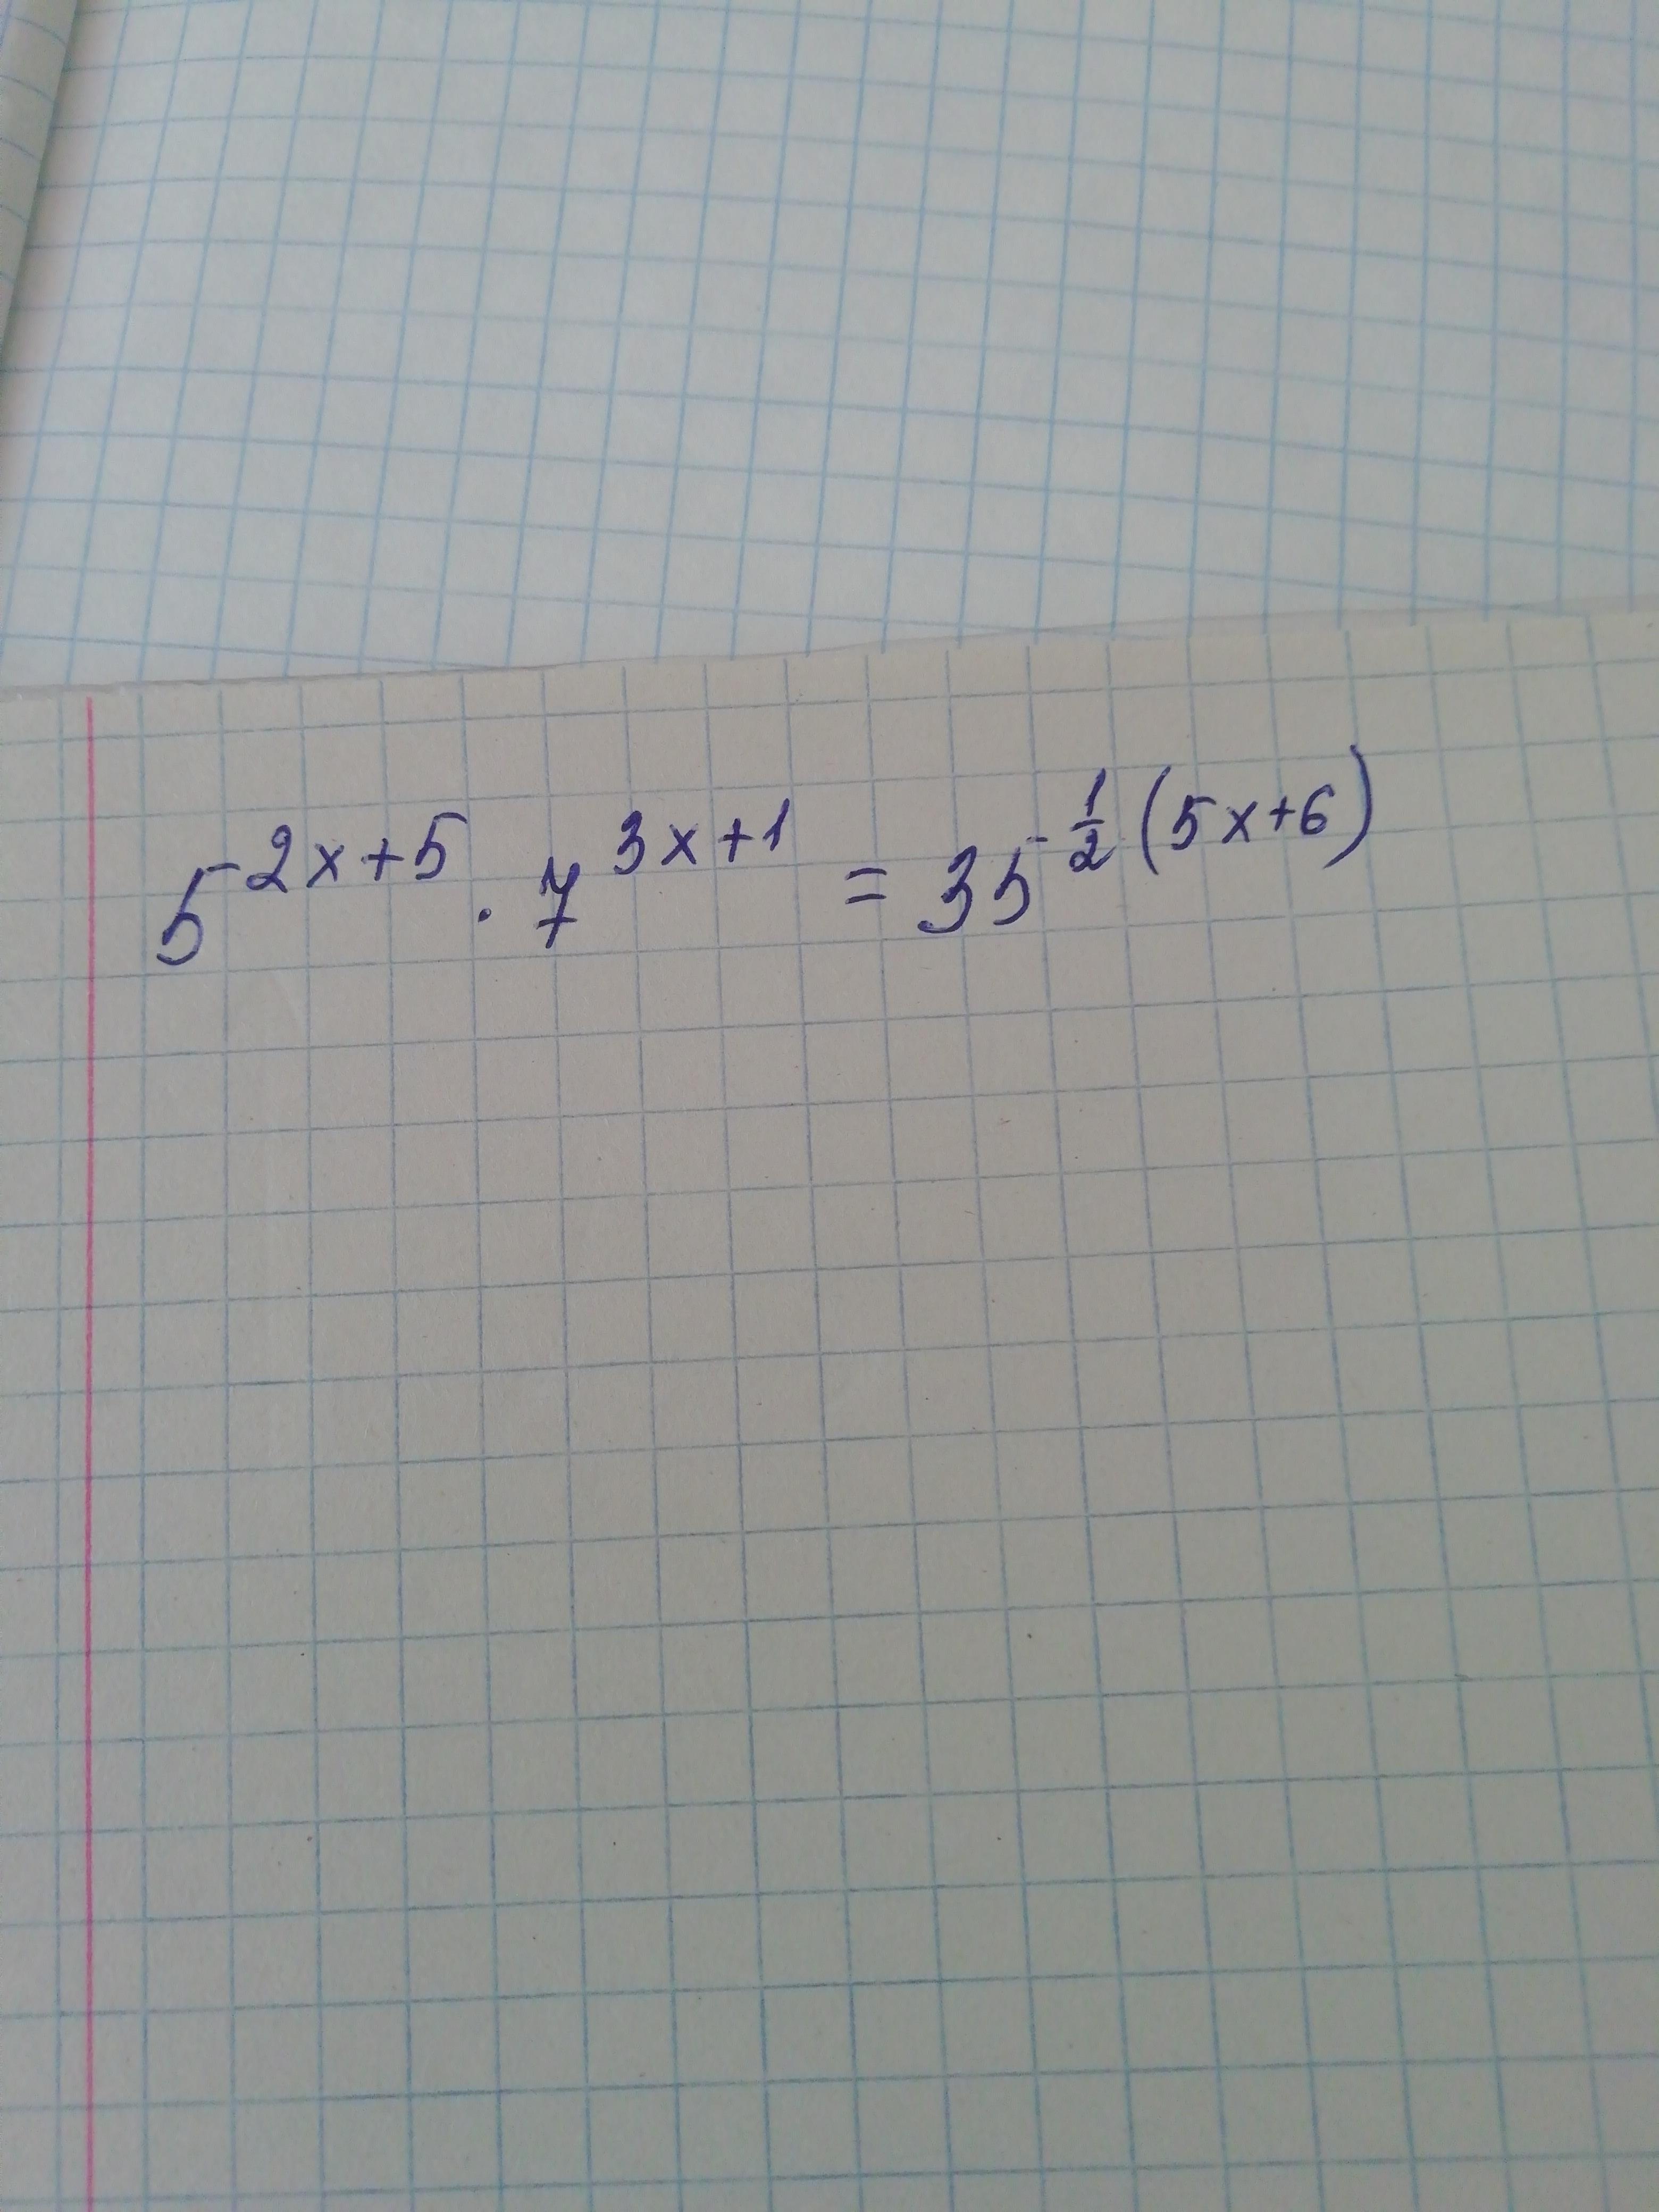 5^{2x+5} · 7^{3x+1} = 35^{\frac{1}{2}(5x+6)}